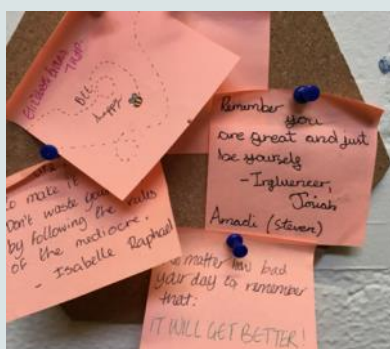 BEE
happy
Remember
you
are great and just
be yourself
- Influencer,
Josiah
Amadi (Steven)
to make it
Don't waste your
by following the rules
of the mediocre.
- Isabelle Raphael
matter how bad
your day to remember
that:
IT WILL GET BETTER!